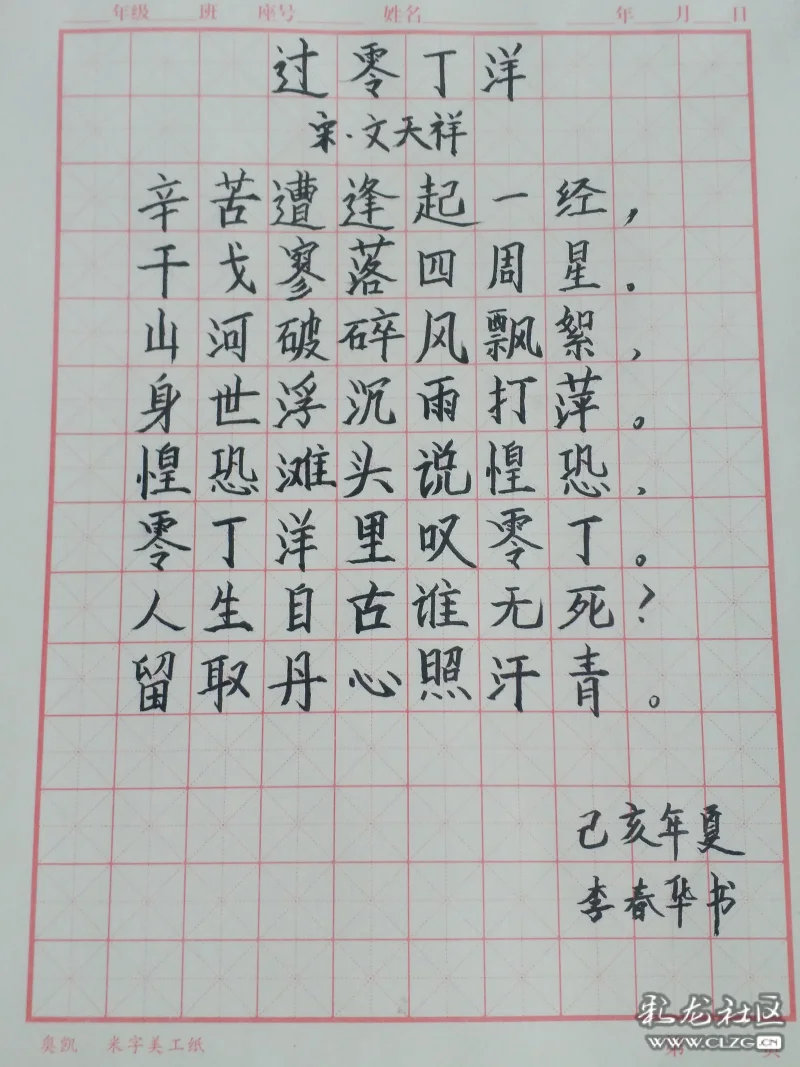 年级 班 座号 姓名 年 月 日
过零丁洋
宋·文天祥
辛苦遭逢起一经，
干戈寥落四周星。
山河破碎风飘絮，
身世浮沉雨打萍。
惶恐滩头说惶恐，
零丁洋里叹零丁。
人生自古谁无死？
留取丹心照汗青。
己亥年夏
李春华书
奥凯 米字美工纸 第 页
彩龙社区
WWW.CLZG.CN